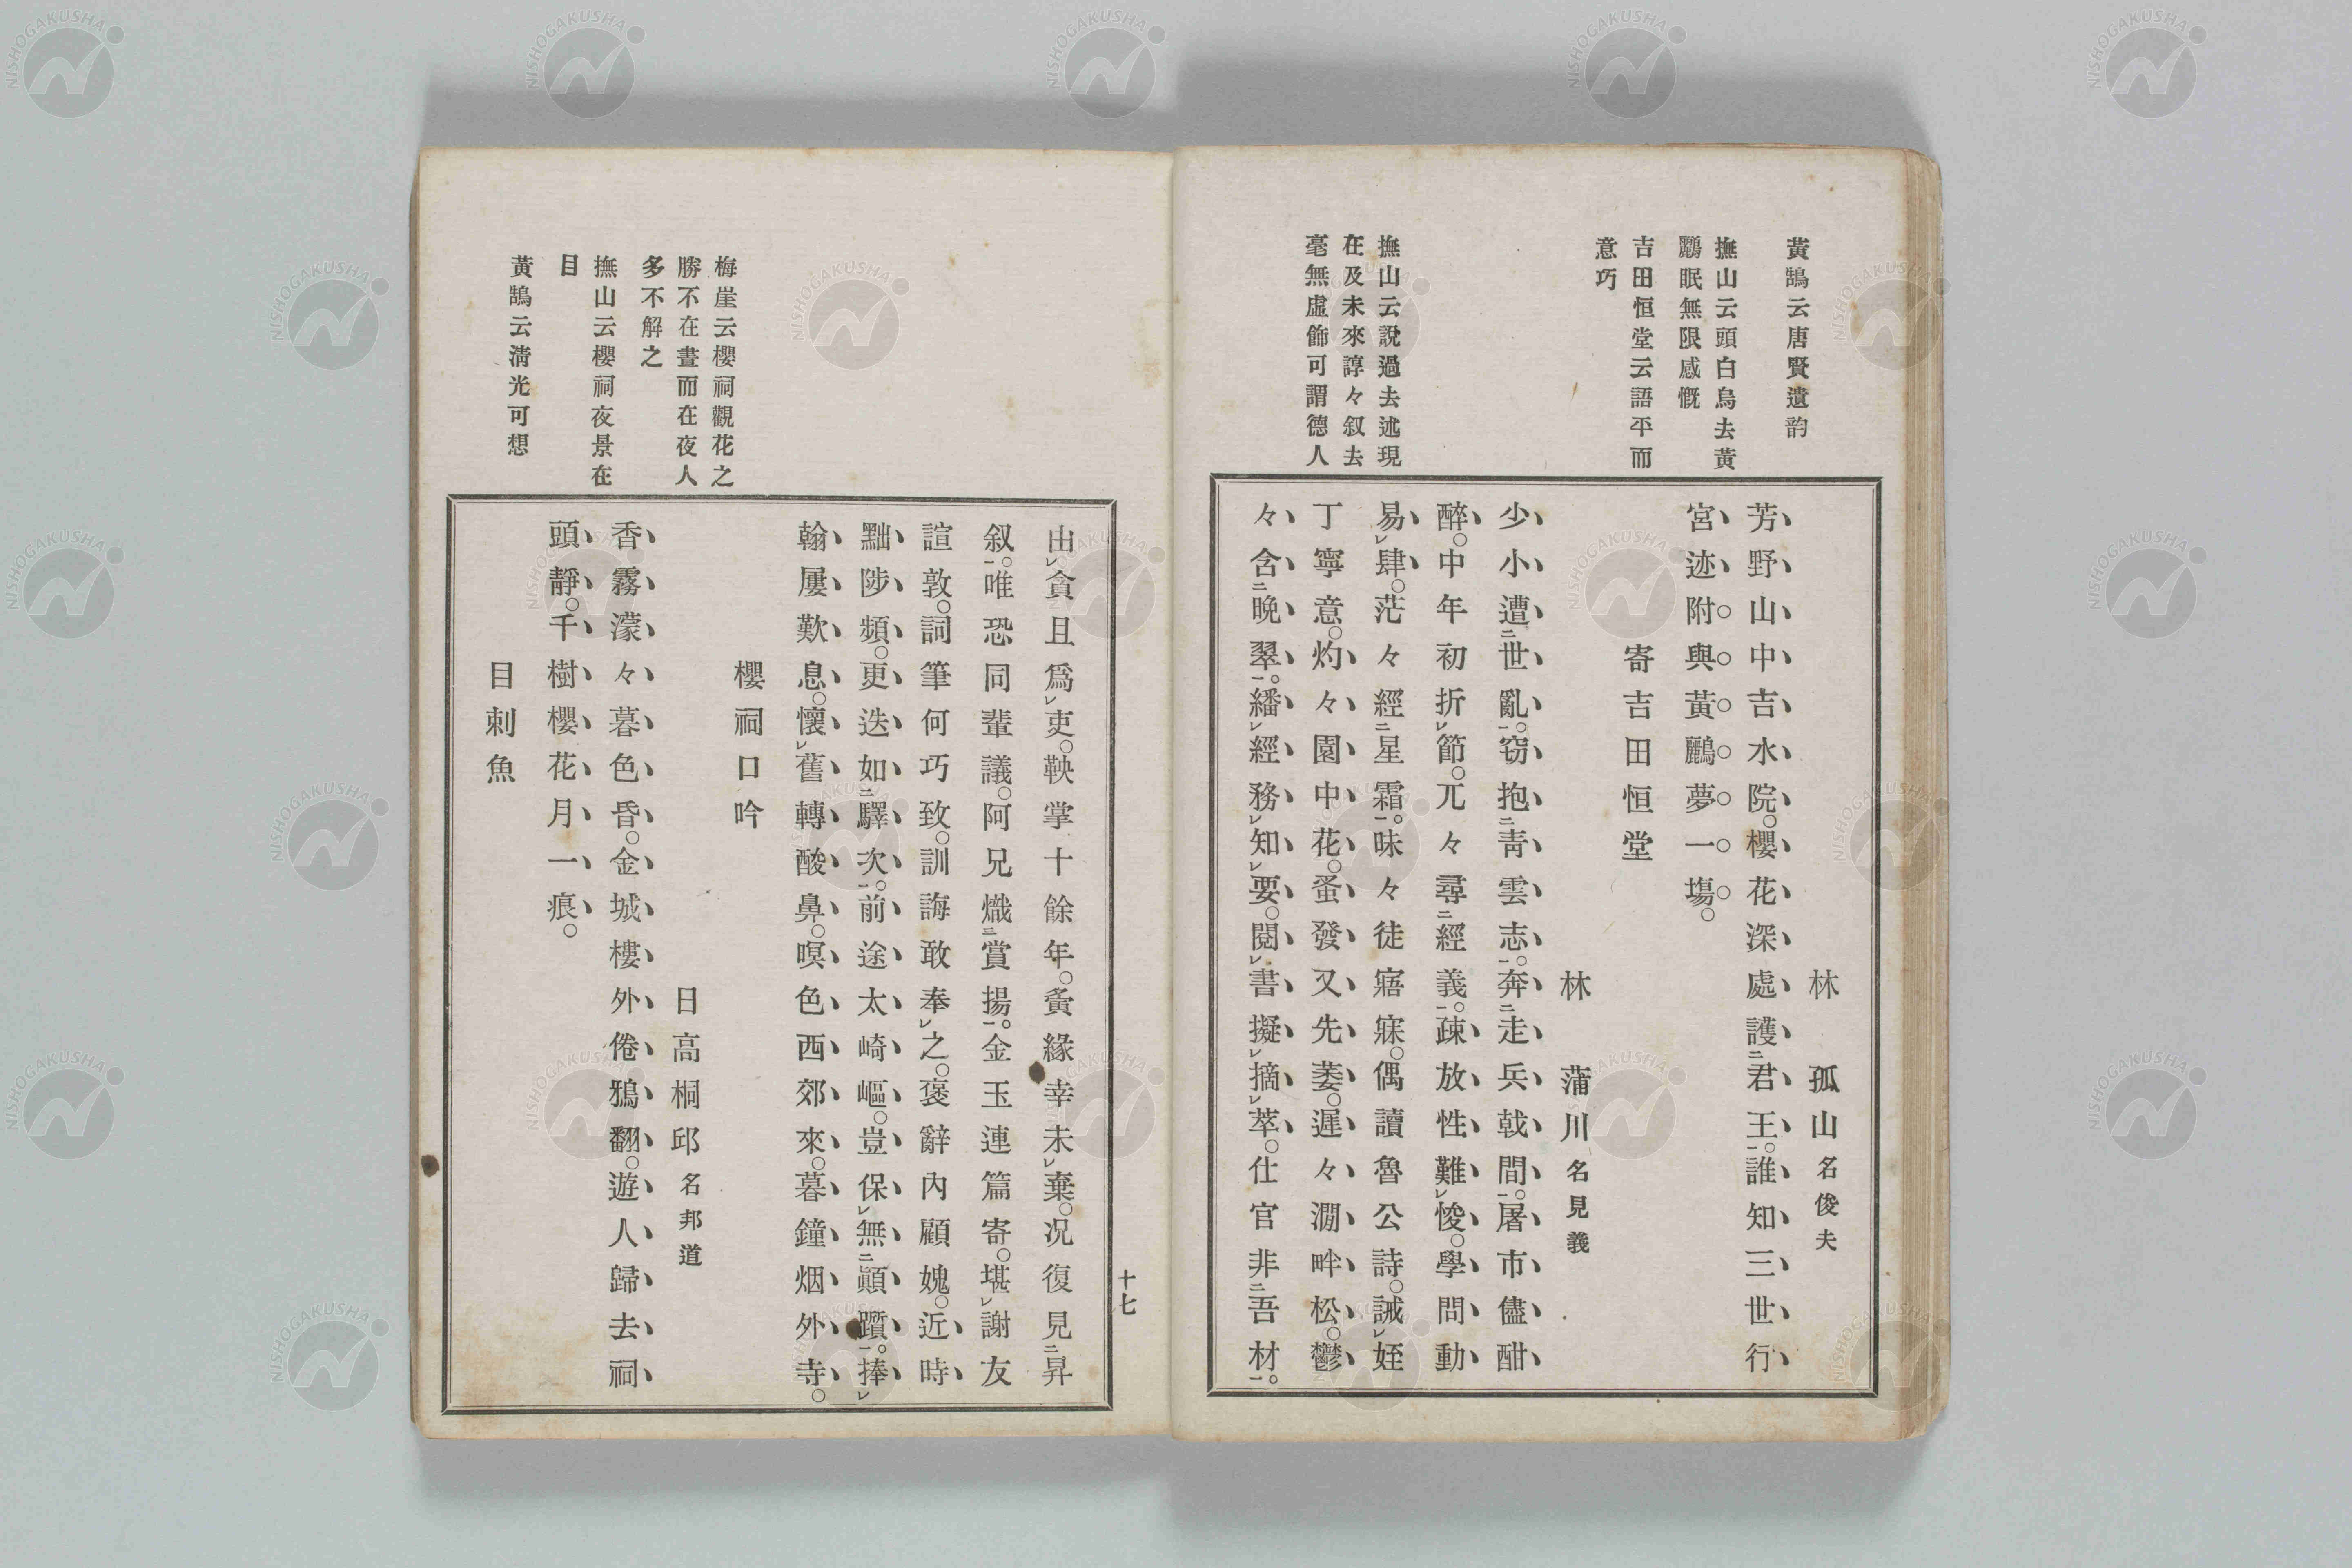 黃鵠云唐賢遺韵
撫山云頭白烏去黃
鸝眠無限感慨
吉田恒堂云語平而
意巧
撫山云說過去述現
在及未來諄々叙去
毫無虛飾可謂德人
林　孤山名俊夫
芳野山中吉水院。櫻花深處護二君王一。誰知三世行
宮迹附與黃鸝夢一塲。
寄吉田恒堂
林　蒲川名見義
少小遭二世亂一。窃抱二靑雲志一。奔二走兵戟間一。屠市儘酣
醉。中年初折レ節。兀々尋二經義一。疎放性難レ悛。學問動
易レ肆。茫々經二星霜一。昧々徒寤寐。偶讀魯公詩。誡レ姪
丁寧意。灼々園中花。蚤發又先萎。遲々澗畔松。鬱
々含二晩翠一。繙レ經務レ知レ要。閱レ書擬レ摘レ萃。仕官非二吾材一。
梅崖云櫻祠觀花之
勝不在晝而在夜人
多不解之
撫山云櫻祠夜景在
目
黃鵠云淸光可想
由レ貪且爲レ吏。鞅掌十餘年。夤緣幸未レ棄。况復見二昇
叙一。唯恐同輩議。阿兄熾二賞揚一。金玉連篇寄。堪レ謝友
諠敦。詞筆何巧致。訓誨敢奉レ之。褒辭內顧媿。近時
黜陟頻。更迭如二驛次一。前途太崎嶇。豈保レ無二顚躓一。捧レ
翰屢歎息。懷レ舊轉酸鼻。暝色西郊來。暮鐘烟外寺。
櫻祠口吟
日高桐邱名邦道
香霧濛々暮色昏。金城樓外倦鴉翻。遊人歸去祠
頭靜。千樹櫻花月一痕。
目刺魚
十七
NISHOGAKUSHA